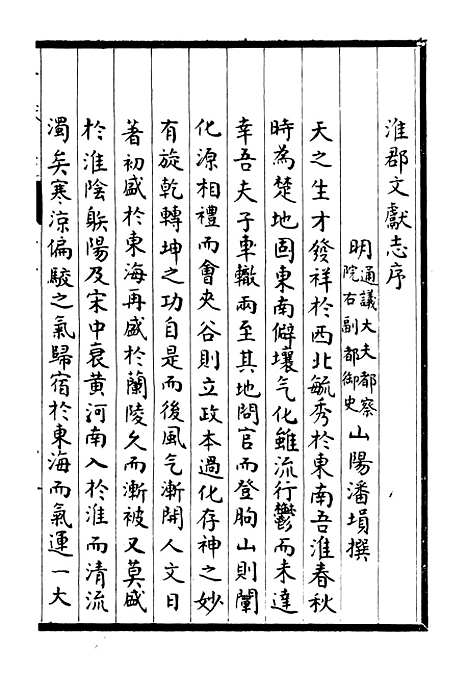 淮郡文獻志序
明通議大夫都察院右副都御史山陽潘塤撰
天之生才發祥於西北毓秀於東南吾淮春秋
時為楚地固東南僻壤气化雖流行鬱而未達
幸吾夫子車轍兩至其地問官而登朐山則闡
化源相禮而會夾谷則立政本過化存神之妙
有旋乾轉坤之功自是而後風气漸開人文日
著初盛於東海再盛於蘭陵久而漸被又莫盛
於淮陰躲陽及宋中衰黄河南入於淮而清流
濁矣寒涼偏駁之氣歸宿於東海而氣運一大